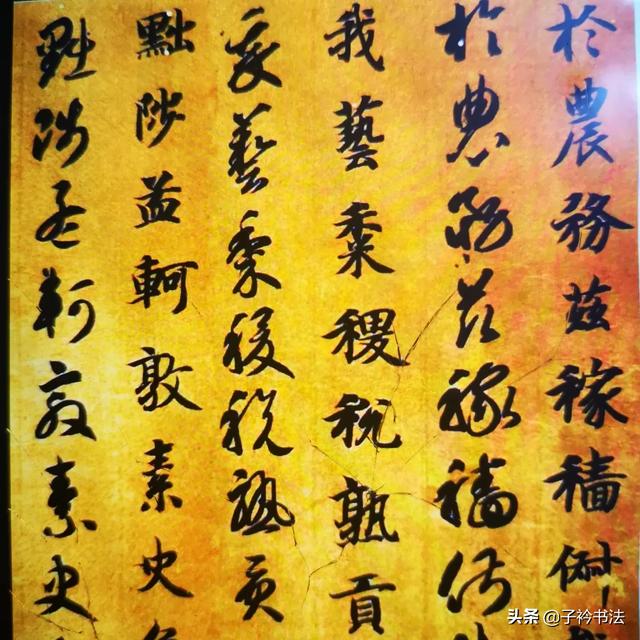 於農務茲稼穡俶
於農務茲稼穡俶
我藝黍稷税熟貢
我藝黍稷税熟貢
黜陟孟軻敦素史
黜陟孟軻敦素史
头条 @子衿书法